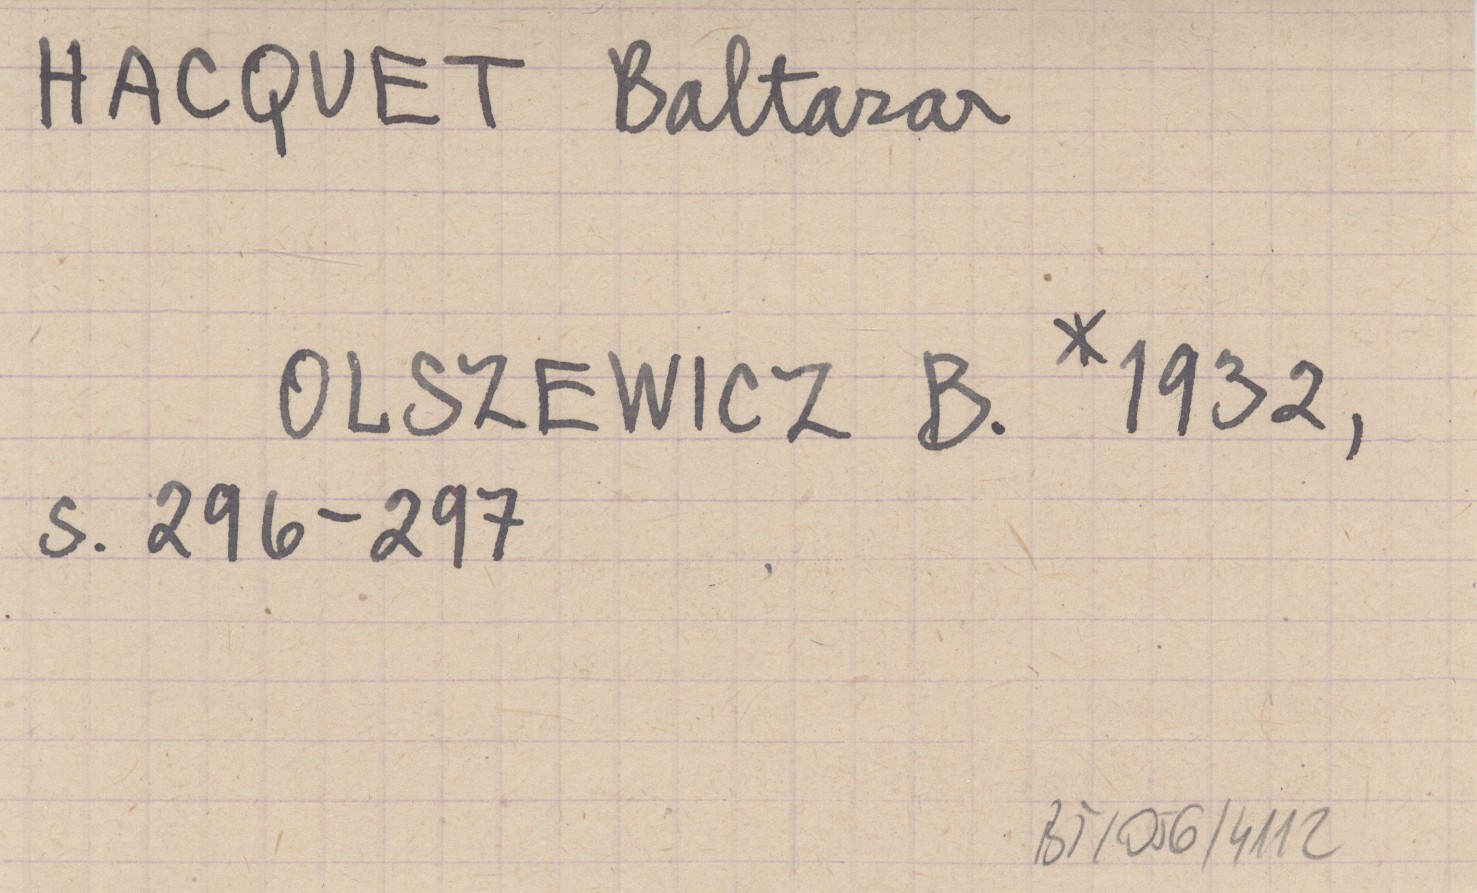 HACQUET Baltazar
OLSZEWICZ B. *1932,
s. 296-297
BI/056/4112